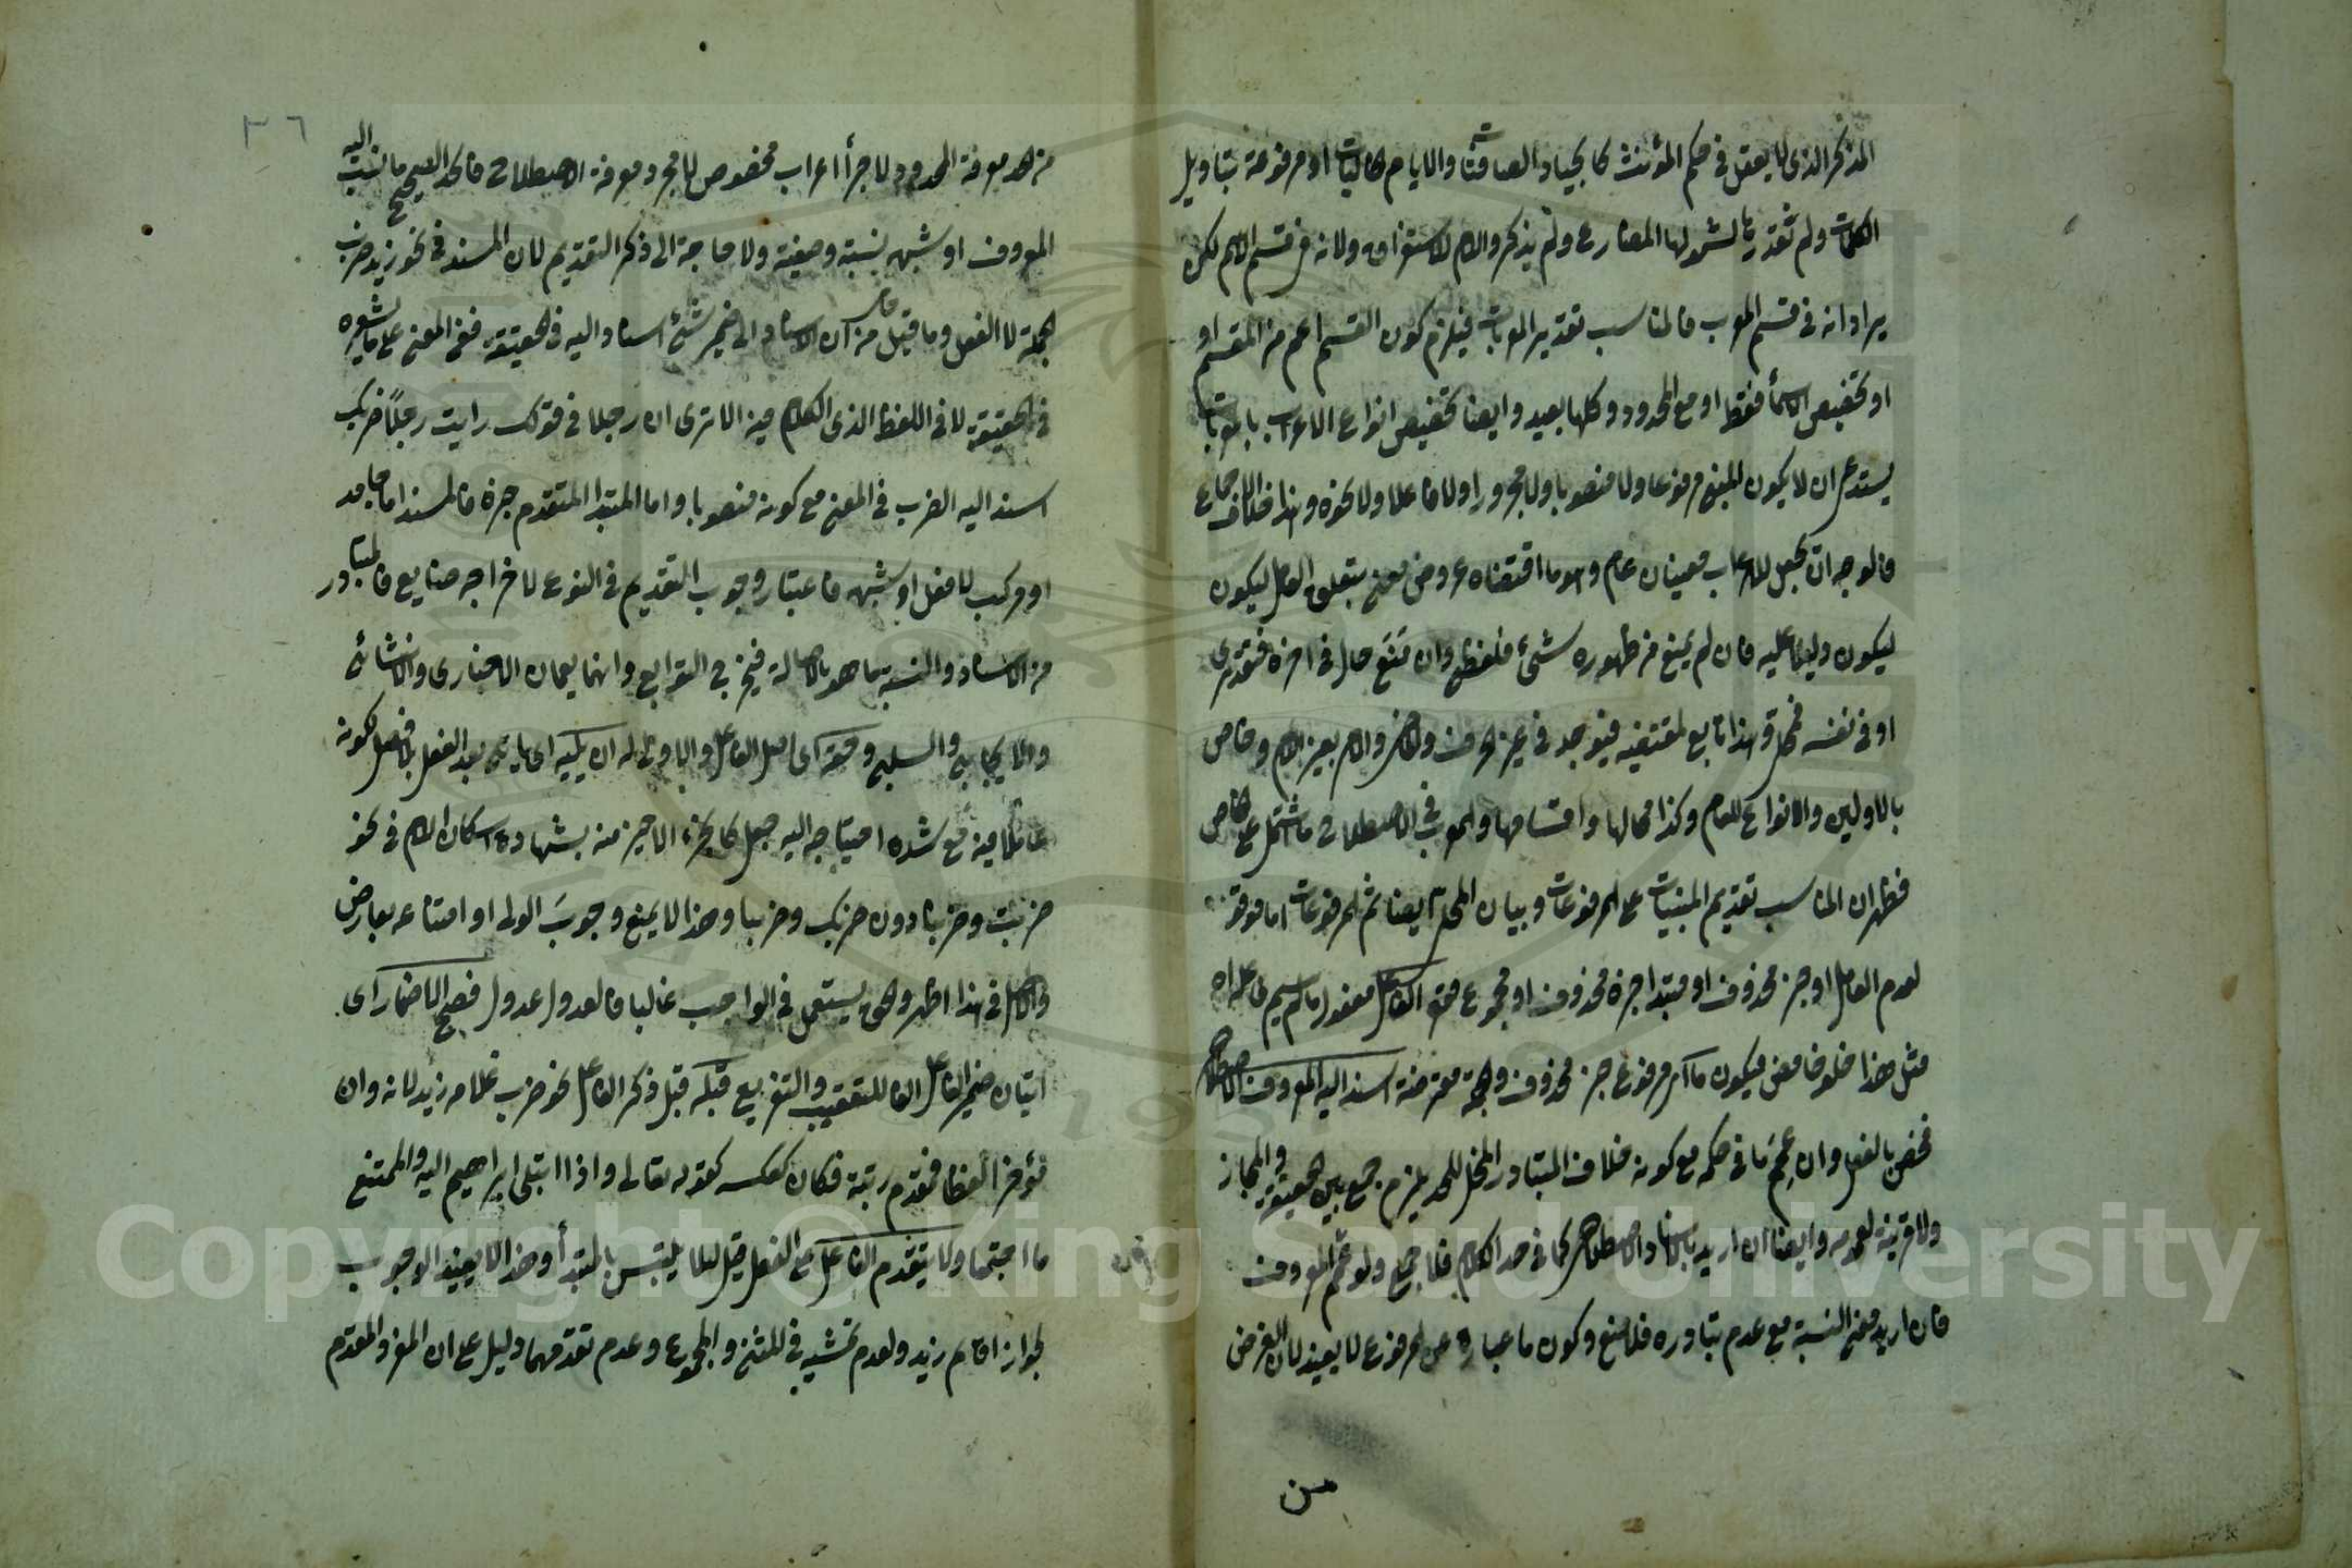 المذكر الذى لا يعقل فى حكم المؤنث كالجياد الصافنات والايام الخاليات او مرفوعة بتاويل
الكلمات ولم تقدر بها لشمولها المضارع ولم يذكر واللام للاستغراق ولانه من قسم الاسم لكن
يراد انه فى قسم المعرب فالمناسب تقدير المعربات فيلزم كون القسم اعم من المقسم او
او تخصيص الاسماء فقط او مع المحدود وكلها بعيد وايضا تخصيص انواع الاعراب بالمعربات
يستدعى ان لا يكون المبنى مرفوعا ولا منصوبا ولا مجرورا ولا فاعلا ولا نحوه وهذا خلاف الاجماع
فالوجه ان يجعل للاعراب معنيان عام وهو ما اقتضاه عروض معنى بتعلق العامل ليكون
ليكون دليلا عليه فان لم يمنع من ظهوره شئ فلفظى وان منع حال فى اخره فتقديرى
او فى نفسه فمحلى وهذا تابع لمقتضيه فيوجد فى غير الحرف والامر بغير اللام وخاص
بالاولين والانواع للعام وكذا محالها واقسامها والمعرب فى الاصطلاح ما اشتمل على الخاص
فظهر ان المناسب تقديم المبنيات على المرفوعات وبيان المحلى ايضا ثم المرفوعات اما موقوف
لعدم العامل او خبر محذوف او مبتدا خبره محذوف او مجموع فمنه الفاعل مفعول ما لم يسم فاعله اه
مثل هذا فيكون ما مر مرفوع خبر محذوف والجملة معترضة اسند اليه المعروف الاصطلاحى
فخص بالفعل وان عمم فى حكمه مع كونه خلاف المتبادر المخل للحد يلزم جمع بين الحقيقة والمجاز
ولا قرينة لعمومه وايضا ان اريد بالاسناد الاصطلاحى كما فى حد الكلام فلا جمع ولو عمم المعروف
فان اريد معنى النسبة مع عدم تبادره فلا منع وكون ما عبارة عن المرفوع لا يفيد لان الغرض
من
٣٦
من الحد معرفة المحدود لاجراء اعراب مخصوص لا مجرد معرفة الاصطلاح فالحد الصحيح ما نسب اليه
المعروف او شبهه بنسبة وصيغة ولا حاجة الى ذكر التقديم لان المسند فى نحو زيد ضرب
الجملة لا الفعل وما قيل من ان الاسناد الى ضمير شئ اسناد اليه فى الحقيقة ففى المعنى على ما يشعره
فى الحقيقة لا فى اللفظ الذى الكلام فيه الا ترى ان رجلا فى قولك رايت رجلا ضربك
اسند اليه الضرب فى المعنى مع كونه منصوبا واما المبتدا المتقدم خبره فالمسند اما جامد
او مركب لا فعل او شبهه فاعتبار وجوب التقديم فى النوع لاخراجه ضايع فالمتبادر
من الاسناد والنسبة ما هو بالاصالة فيخرج التوابع وانهما يعمان الاخبارى والانشائى
والايجابى والسلبى وحقه اى اصل الفاعل والاولى له ان يليه اى ياتى بعد الفعل بلا فصل لكونه
عاملا فيه مع شدة احتياجه اليه جعل كالجزء الاخير منه بشهادة اسكان اللام فى نحو
ضربت وضربنا دون ضربك وضربنا وهذا لا يمنع وجوب الولى او امتناعه بعارض
والاصل فى هذا اظهر والحق يستعمل فى الواجب غالبا فالعدول عدول فصح الاضمار اى
اتيان ضمير الفاعل الفاء للتعقيب والتفريع قبله قبل ذكر الفاعل نحو ضرب غلامه زيد لانه وان
تؤخر لفظا فمقدم رتبة فكان كعكسه كقوله تعالى واذا ابتلى ابراهيم اليه والممتنع
ما اجتمعا ولا يتقدم الفاعل على الفعل قيل لئلا يلتبس بالمبتدأ وهذا لا يفيد الوجوب
لجواز اقايم زيد ولعدم تمشيه فى المثنى والمجموع وعدم تقدمهما دليل على ان المفرد المقدم